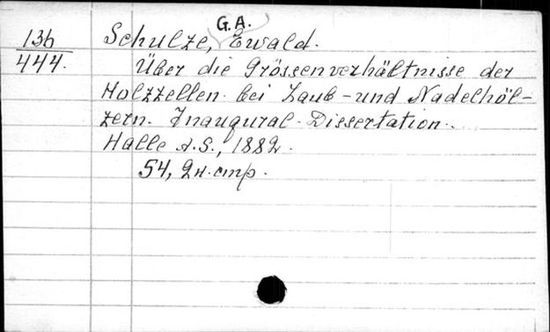 G.A.
136 Schulze, Ewald.
444. Über die Grössenverhältnisse der
Holzzellen bei Laub- und Nadelhöl-
zern. Inaugural-Dissertation.
Halle a.S., 1882.
54, 2н. стр.